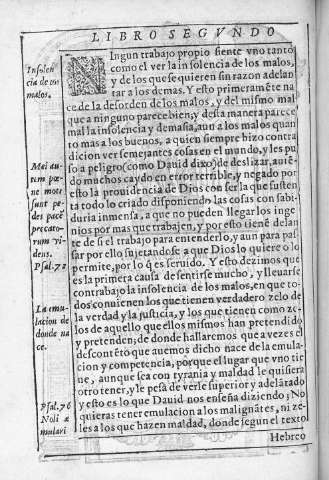 LIBRO SEGVNDO
Insolen
cia de los
malos.
NIngun trabajo propio siente vno tanto
como el ver la insolencia de los malos,
y de los que se quieren sin razon adelan
tar a los demas. Y esto primeramēte na
ce de la desorden de los malos, y del mismo mal
que a ninguno parece bien; y desta manera parece
mal la insolencia y demasia, aun a los malos quan
to mas a los buenos, a quien siempre hizo contra
dicion ver semejantes cosas en el mundo, y les pu
so a peligro (como Dauid dixo) de deslizar, auiē
do muchos caydo en error terrible, y negado por
esto la prouidencia de Dios con ser la que susten
ta todo lo criado disponiendo las cosas con sabi-
duria inmensa, a que no pueden llegar los inge
nios por mas que trabajen, y por esto tiene delan
te de si el trabajo para entenderlo, y aun para pas
sar por ello sujetandose a que Dios lo quiere o lo
permite, por lo q̃ es seruido. Y esto dezimos que
es la primera causa de sentirse mucho, y lleuarse
con trabajo la insolencia de los malos, en que to-
dos conuienen los que tienen verdadero zelo de
la verdad y la justicia, y los que tienen como ze-
los de aquello que ellos mismos han pretendido
y pretenden; de donde hallaremos que a vezes el
descontēto que auemos dicho nace de la emula-
cion y competencia, porque el lugar que vno tie
ne, aunque sea con tyrania y maldad le quisiera
otro tener, y le pesa de verle superior y adelātado
y esto es lo que Dauid nos enseña diziendo; No
quieras tener emulacion a los malignātes, ni ze-
les a los que hazen maldad, donde segun el texto
Hebreo
Mei au-
tem pæ-
ne mote
sunt pe-
des pacē
precato-
rum vi-
dens.
Psal. 72
La emu-
lacion de
donde na
ce.
Psal. 76
Noli æ
mulari